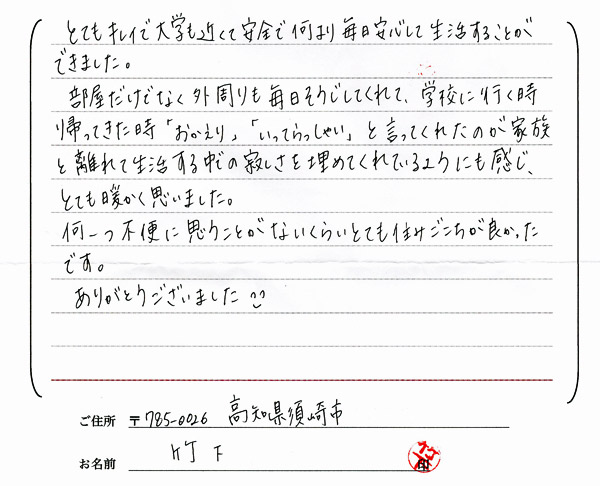 とてもキレイで大学も近くて安全で何より毎日安心して生活することが
できました。
部屋だけでなく外周りも毎日そうじしてくれて、学校に行く時
帰ってきた時「おかえり」、「いってらっしゃい」と言ってくれたのが家族
と離れて生活する中での寂しさを埋めてくれているようにも感じ、
とても暖かく思いました。
何一つ不便に思うことがないくらいとても住みごこちが良かった
です。
ありがとうございました
ご住所 〒785-0026 高知県須崎市
お名前 竹下 印